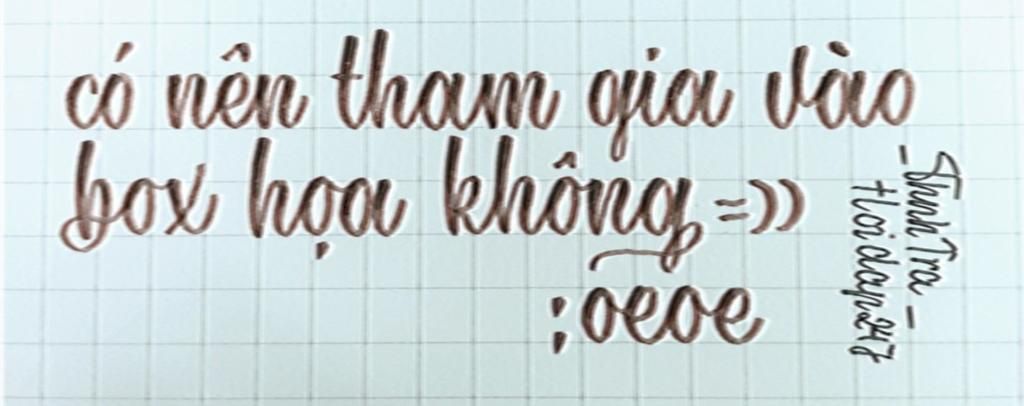 có nên tham gia vào
box họa không =))
;oeoe
_ShnhTra_
Hoidap247